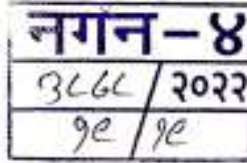 नगंन-४
३८६८/२०२२
१९/१९